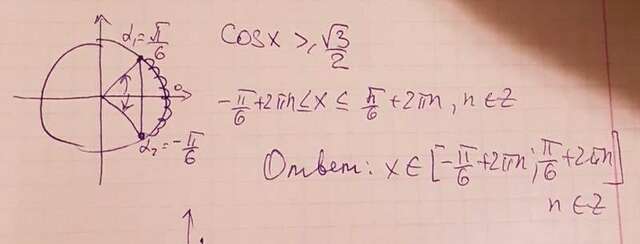 α₁=π/6
cosx ⩾ √3/2
0
-π/6+2πn≤x≤π/6+2πn, n∈Z
α₂=-π/6
Ответ: x∈[-π/6+2πn;π/6+2πn]
n∈Z